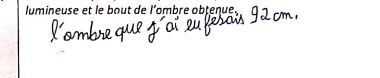 lumineuse et le bout de l'ombre obtenue.
l'ombre que j'ai eu fesais 92 cm.